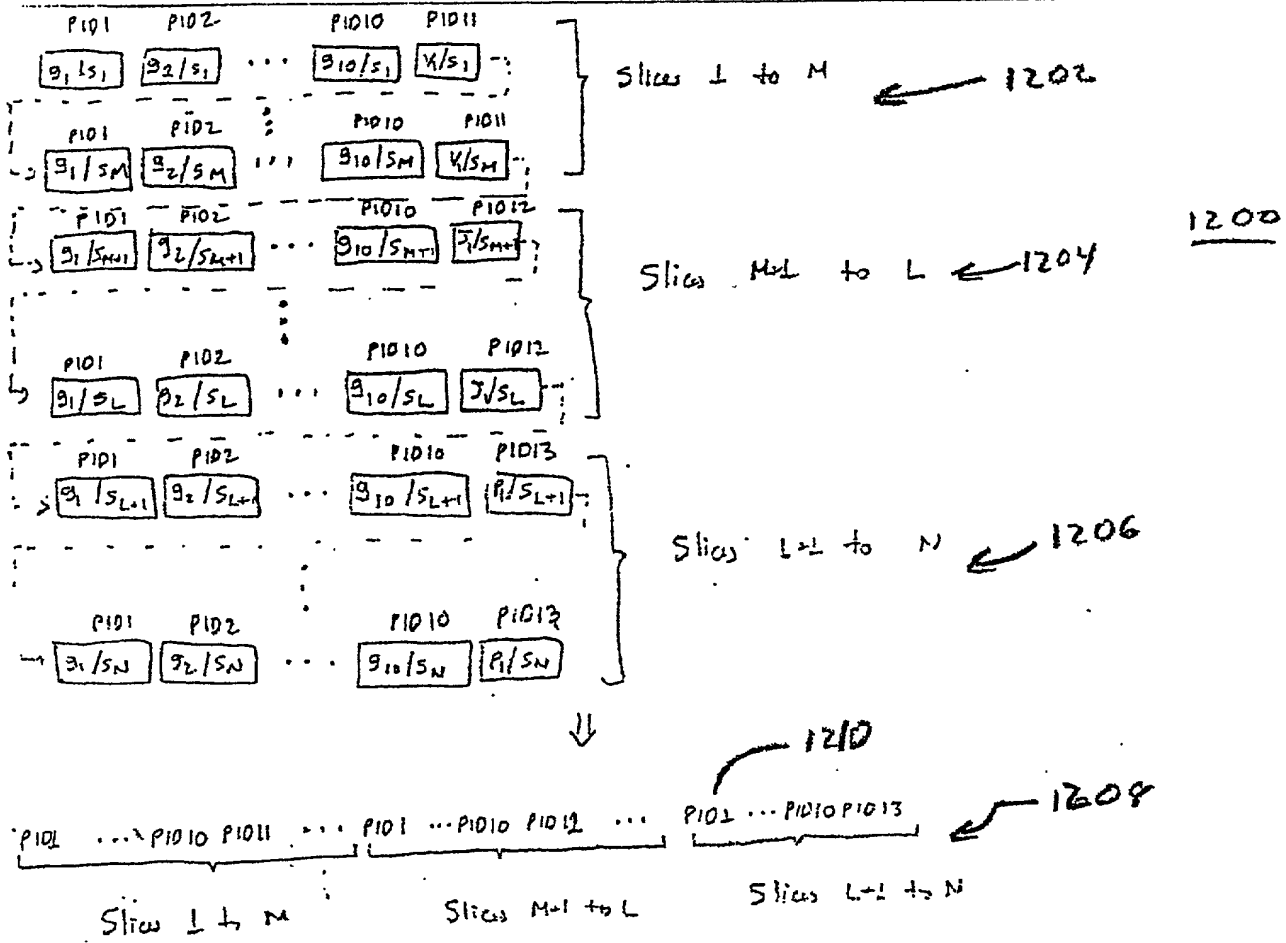 PID1 PID2 PID10 PID11
g1/s1 g2/s1 ... g10/s1 V1/s1
Slices 1 to M
1202
PID1 PID2 PID10 PID11
g1/sM g2/sM ... g10/sM V1/sM
PID1 PID2 PID10 PID12
g1/sM+1 g2/sM+1 ... g10/sM+1 J1/sM+1
1200
Slices M+1 to L
1204
PID1 PID2 PID10 PID12
g1/sL g2/sL ... g10/sL J1/sL
PID1 PID2 PID10 PID13
g1/sL+1 g2/sL+1 ... g10/sL+1 P1/sL+1
Slices L+1 to N
1206
PID1 PID2 PID10 PID13
g1/sN g2/sN ... g10/sN P1/sN
⇓
1210
1208
PID1 ... PID10 PID11 ... PID1 ... PID10 PID12 ... PID1 ... PID10 PID13
Slices 1 to M Slices M+1 to L Slices L+1 to N